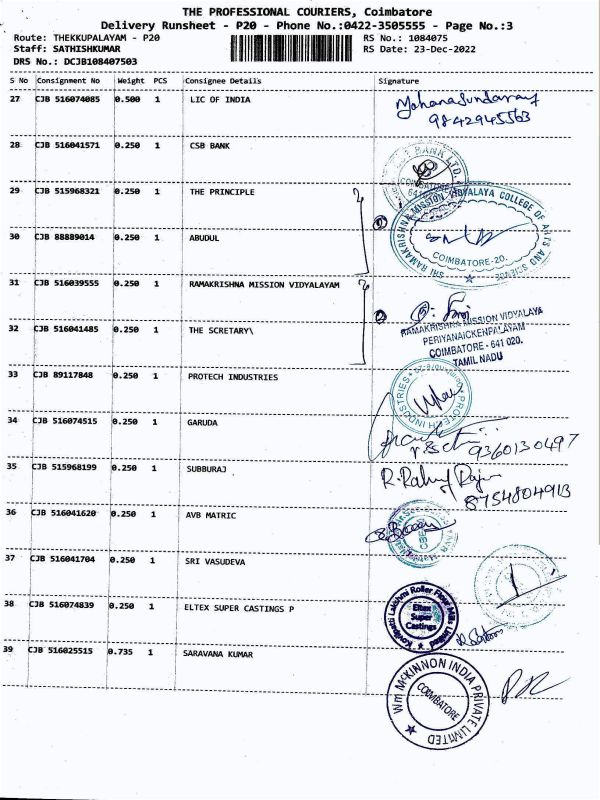 THE PROFESSIONAL COURIERS, Coimbatore
Delivery Runsheet - P20 - Phone No.:0422-3505555 - Page No.:3
Route: THEKKUPALAYAM - P20 RS No.: 1084075
Staff: SATHISHKUMAR RS Date: 23-Dec-2022
DRS No.: DCJB108407503
S No Consignment No Weight PCS Consignee Details Signature
27 CJB 516074085 0.500 1 LIC OF INDIA Mohanasundaram
9842945563
28 CJB 516041571 0.250 1 CSB BANK
BANK LTD.
COIMBATORE
29 CJB 515968321 0.250 1 THE PRINCIPLE
SRI RAMAKRISHNA MISSION VIDYALAYA COLLEGE OF ARTS AND SCIENCE
COIMBATORE-20.
30 CJB 88889014 0.250 1 ABUDUL
31 CJB 516039555 0.250 1 RAMAKRISHNA MISSION VIDYALAYAM
RAMAKRISHNA MISSION VIDYALAYA
PERIYANAICKENPALAYAM
COIMBATORE - 641 020.
TAMIL NADU
32 CJB 516041485 0.250 1 THE SCRETARY\
33 CJB 89117848 0.250 1 PROTECH INDUSTRIES
PROTECH INDUSTRIES
34 CJB 516074515 0.250 1 GARUDA
9360130497
35 CJB 515968199 0.250 1 SUBBURAJ R. Rahul Raju
8754804913
36 CJB 516041620 0.250 1 AVB MATRIC
37 CJB 516041704 0.250 1 SRI VASUDEVA
38 CJB 516074839 0.250 1 ELTEX SUPER CASTINGS P
Lakshmi Roller Flour Mills Limited
Eltex
Super
Castings
39 CJB 516025515 0.735 1 SARAVANA KUMAR
Wm McKINNON INDIA PRIVATE LIMITED
COIMBATORE